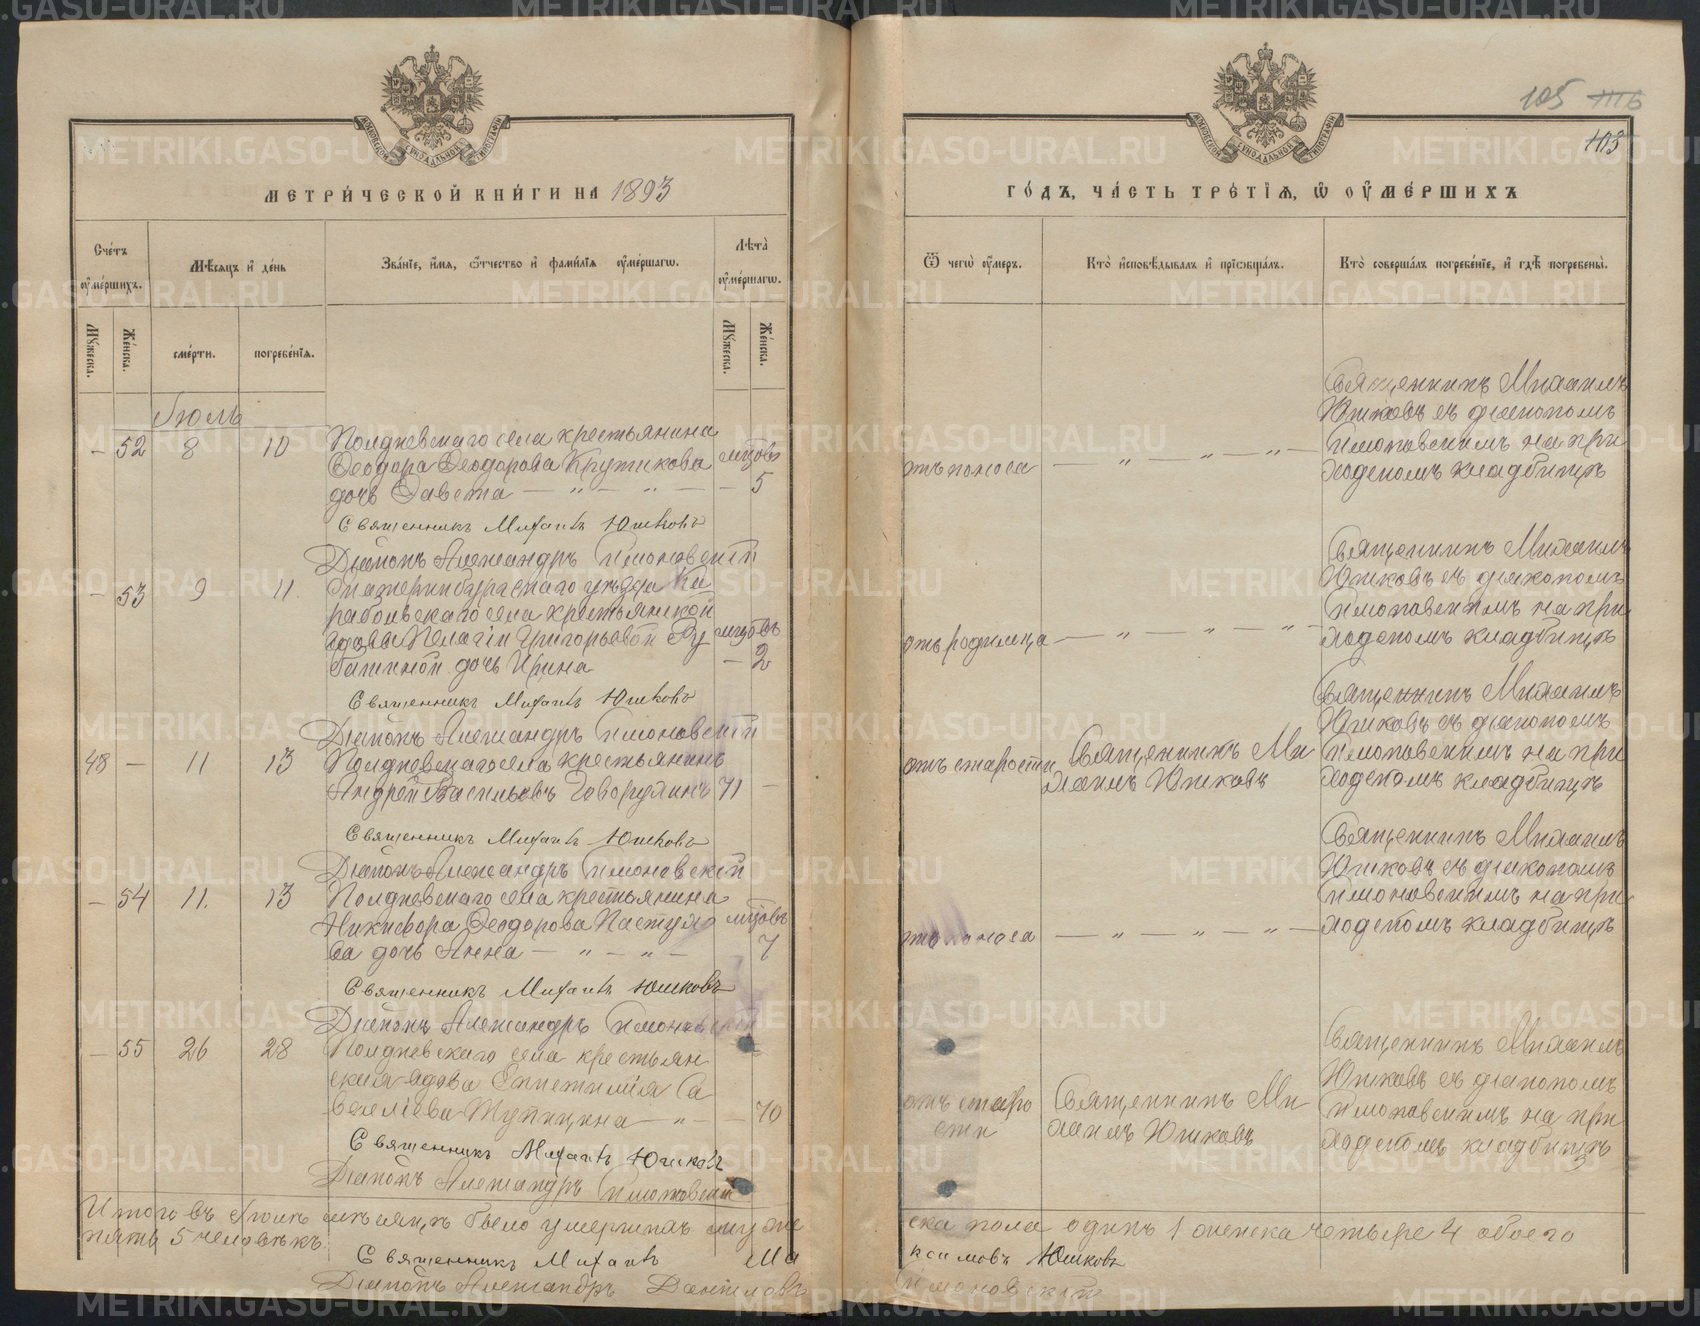 105
103
МЕТРИЧЕСКОЙ КНИГИ НА 1893
ГОДЪ, ЧАСТЬ ТРЕТІЯ, Ѡ ОУМЕРШИХЪ
Счетъ оумершихъ.
Мѣсяцъ и день
Званіе, имя, ѿчество и фамилія оумершагѡ.
Лѣта оумершагѡ.
Ѿ чегѡ оумеръ.
Кто исповѣдывалъ и пріѡбщалъ.
Кто совершалъ погребеніе, и гдѣ погребены.
Мужеска.
Женска.
смерти.
погребенія.
Мужеска.
Женска.
Іюль
— 52 8 10
Полдневскаго села крестьянина
Ѳеодора Ѳеодорова Крутикова мцовъ
дочь — " — " — — 5
отъ поноса — " — " — " —
Священникъ Михаилъ
Юшковъ съ діакономъ
Симоновскимъ на при
ходскомъ кладбищѣ
Священникъ Михаилъ Юшковъ
Діаконъ Александръ Симоновскій
— 53 9 11.
Екатеринбургскаго уѣзда Ка
рабольскаго села крестьянской
вдовы Пелагіи Григорьевой мцовъ
дочь Ирина — 2
отъ родимца — " — " — " —
Священникъ Михаилъ
Юшковъ съ діакономъ
Симоновскимъ на при
ходскомъ кладбищѣ
Священникъ Михаилъ Юшковъ
Діаконъ Александръ Симоновскій
48 — 11 13
Полдневскаго села крестьянинъ
Андрей Васильевъ 71 —
отъ старости
Священникъ Ми
хаилъ Юшковъ
Священникъ Михаилъ
Юшковъ съ діакономъ
Симоновскимъ на при
ходскомъ кладбищѣ
Священникъ Михаилъ Юшковъ
Діаконъ Александръ Симоновскій
— 54 11. 13
Полдневскаго села крестьянина
Никифора Ѳеодорова Пастухо мцовъ
ва дочь Анна — " — " — 7
отъ поноса — " — " — " —
Священникъ Михаилъ
Юшковъ съ діакономъ
Симоновскимъ на при
ходскомъ кладбищѣ
Священникъ Михаилъ Юшковъ
Діаконъ Александръ Симоновскій
— 55 26 28
Полдневскаго села крестьян
ская вдова Епистимія Са
велліева Тупицина — " — — 70
отъ старо
сти
Священникъ Ми
хаилъ Юшковъ
Священникъ Михаилъ
Юшковъ съ діакономъ
Симоновскимъ на при
ходскомъ кладбищѣ
Священникъ Михаилъ Юшковъ
Діаконъ Александръ Симоновскій
Итого въ Іюлѣ мѣсяцѣ было умершихъ муже
ска пола одинъ 1 женска четыре 4 обоего
пять 5 человѣкъ.
Священникъ Михаилъ Ма
ксимовъ Юшковъ
Діаконъ Александръ Даниловъ
Симоновскій
METRIKI.GASO-URAL.RU